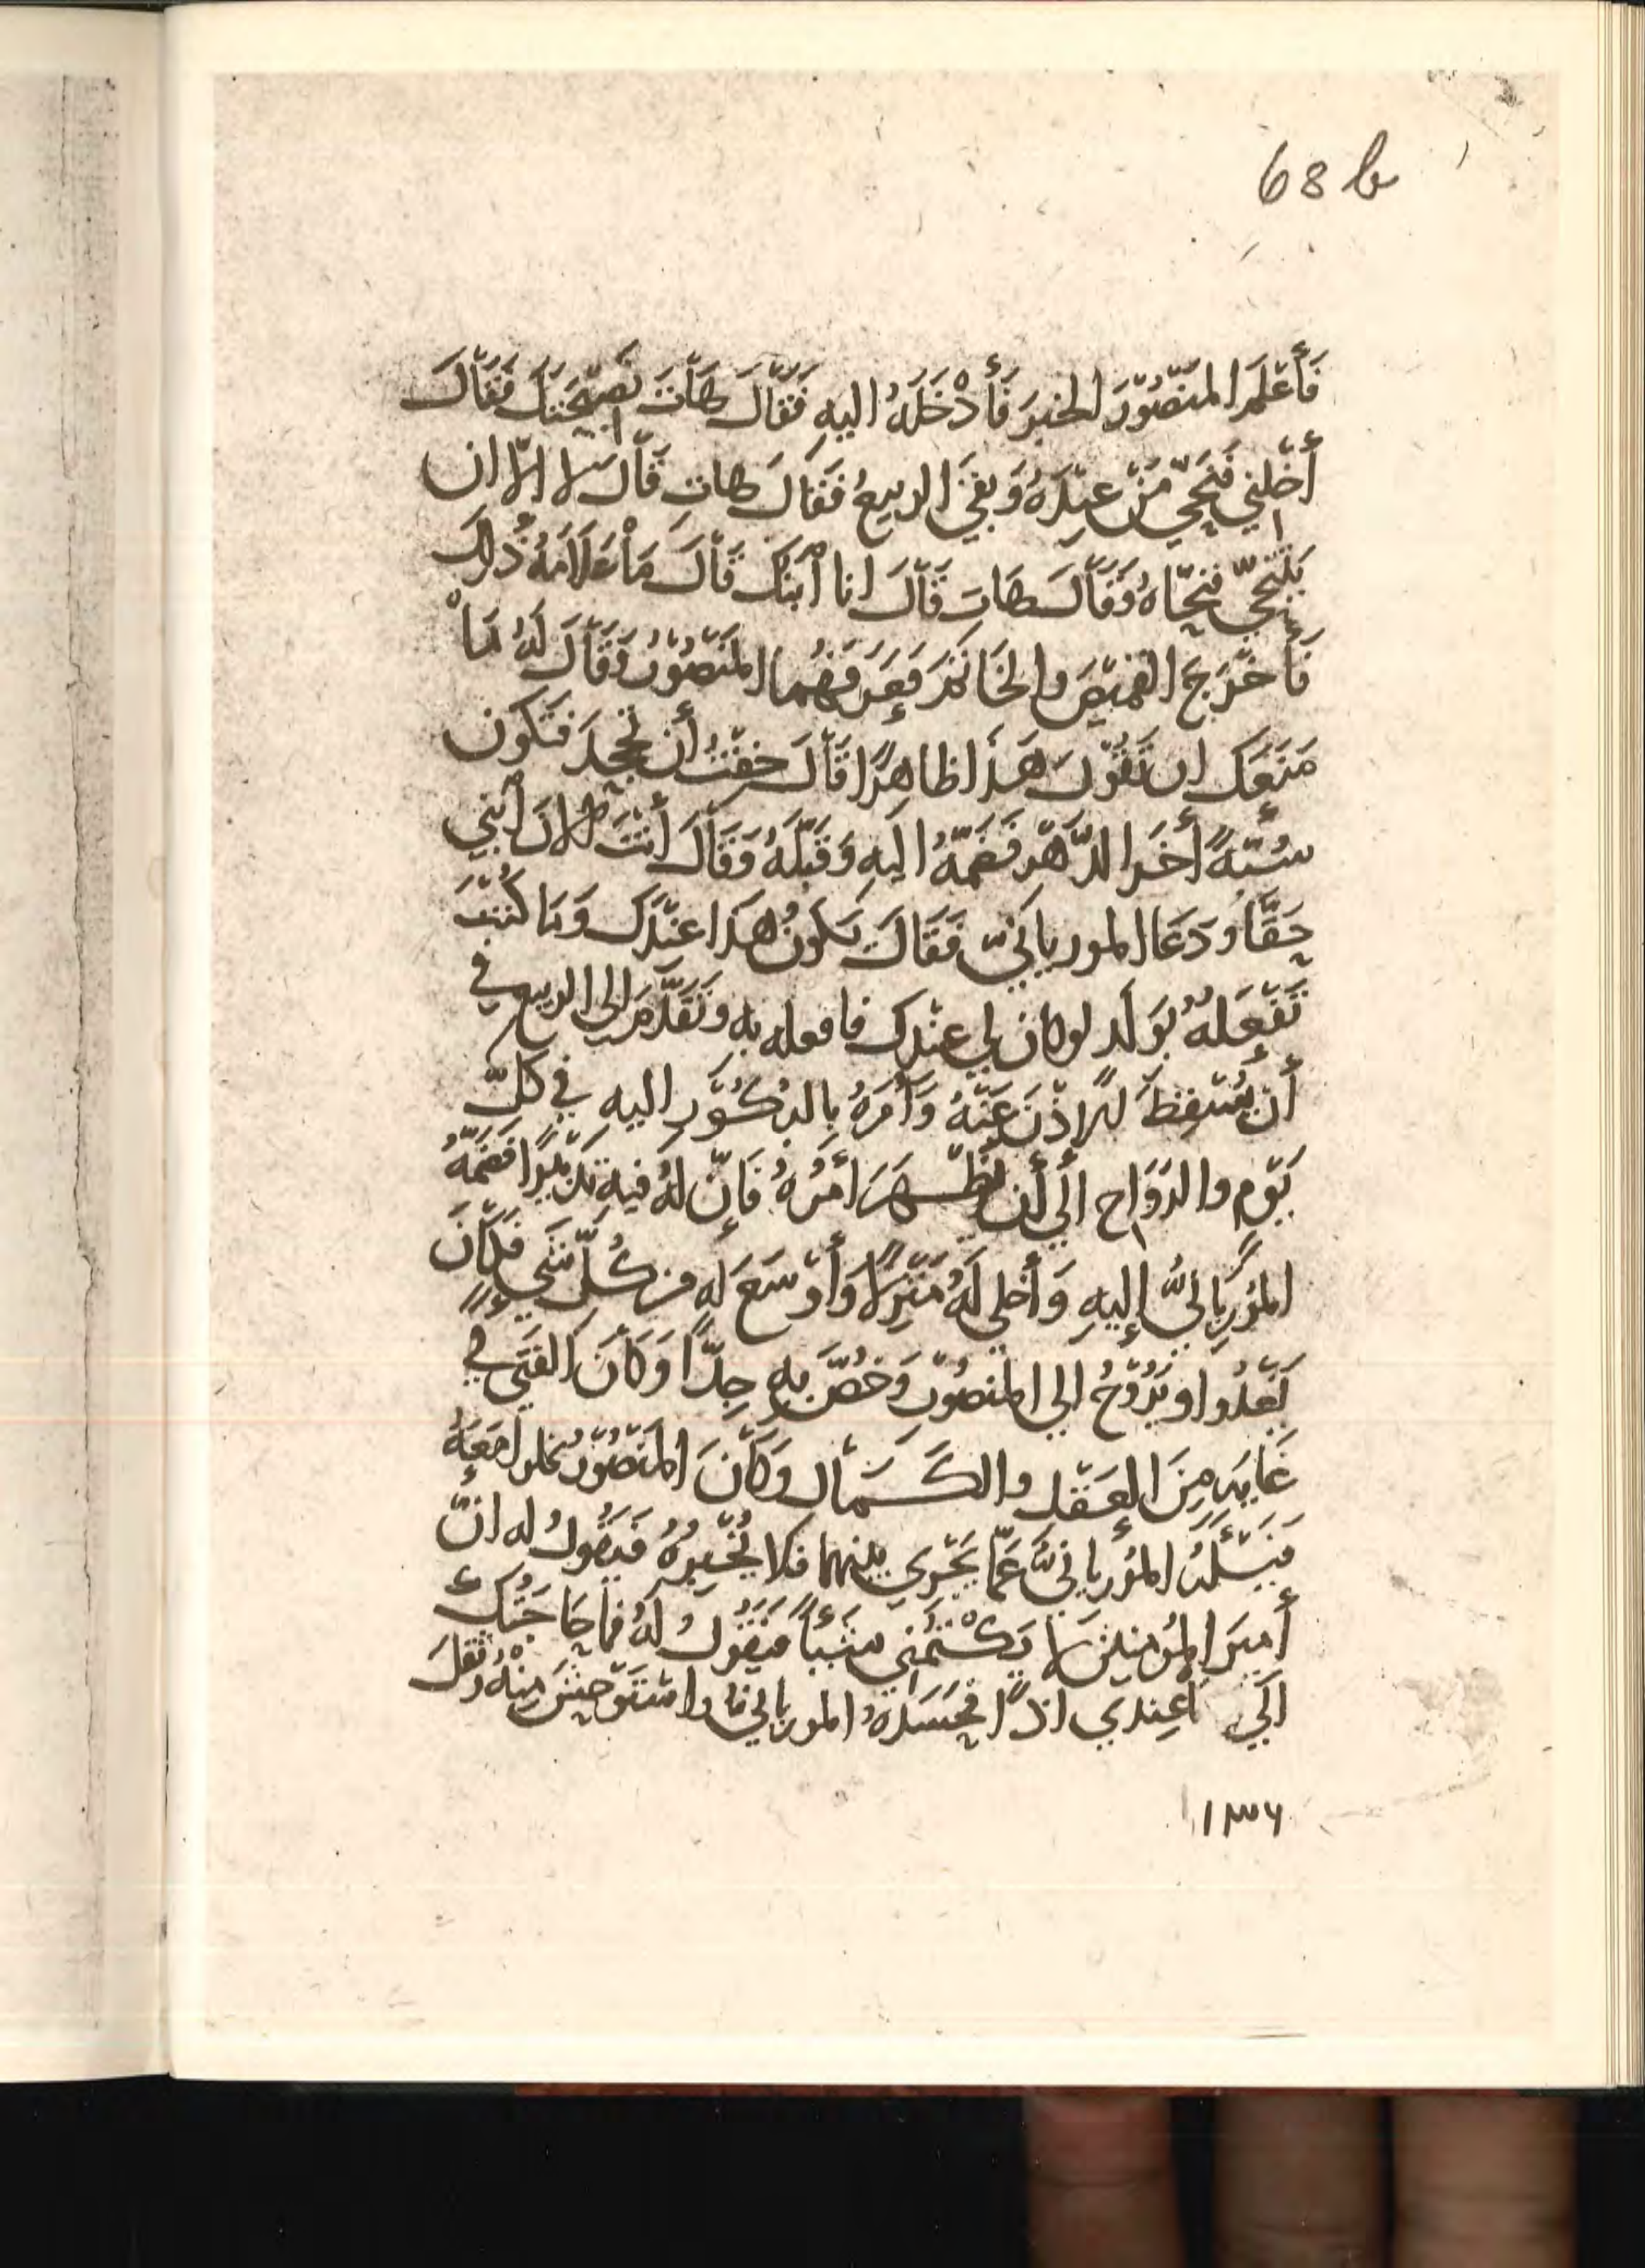 68 b
فَأَعْلَمَ المَنْصُوْرَ الخَبَرَ فَأَدْخَلَهُ اليهِ فَقَالَ هَاتَ نَصِيْحَتَكَ فَقَالَ
أَخْلِني فَنَحِّيَ مَنْ عِنْدَهُ وَبَقيَ الربيعُ فَقَالَ هاتِ قَالَ لا الّا ان
يَتَنَحَّى فنَحّاهُ وَقَالَ هَاتَ قَالَ انا أبنكَ قَالَ مَا عَلَامَةُ ذُلك
فَأَخْرَجَ القَمِيْصَ والخَاتَمَ فَعَرَفَهُما المَنْصُوْرُ وَقَالَ لَهُ مَا
مَنَعَكَ ان تَقُوْلَ هَذَا ظاهِرًا قَالَ خِفْتُ أن تجْحَدَ فَتَكون
سُبّةً أَخَرَ الدَّهْرِ فَضَمَّهُ اليهِ وَقَبَّلَهُ وَقَالَ أَنْتَ الانَ أبْني
حَقَّاً وَدَعَا الموريانيّ فَقَالَ يَكونُ هَذا عِنْدَكَ وَمَا كُنْتَ
تَفْعَلَهُ بوَلَدٍ لو كان لي عندك فافعله به وتَقَدَّمَ الى الربيع في
أن يُسْقِطَ الاذْنَ عَنْهُ وَأَمَرَهُ بالبُكُوْرِ اليه في كلّ
يَوْمٍ والرَوَاحِ ألي أن يظْهَرَ أَمْرُهُ فَإنّ لَهُ فيهِ تَدْبيْرًا فَضَمَّهُ
المُوْرِيانيُّ إليهِ وَأخلى لَهُ مَنْزِلًا وَأوْسَعَ له من كُلّ شَيءٍ فَكَانَ
يَغْدُوا وَيَرُوْحُ الي المنصُوْرِ وَخُصَّ بِهِ جِدّاً وَكَانَ الفَتَى في
غَايَةٍ مِنَ العَقْلِ والكَمَالِ وَكَانَ المَنْصُوْرُ يخلوا مَعَهُ
فَيَسْئَلَهُ المُوْريانيُّ عَمّا يَجْري بينهما فَلا يُخْبِرُهُ فَيَقُولُ له انّ
أَمِيرَ المُؤمنينَ لا يَكْتُمُني شَيْئاً فَيَقُولُ لَهُ فَمَا حَاجَتُكَ
الَي مَا عِندي اذًا فَحَسَدَهُ الموريانيّ واسْتَوحَشَ مِنْهُ وَثقلَ
١٣٦